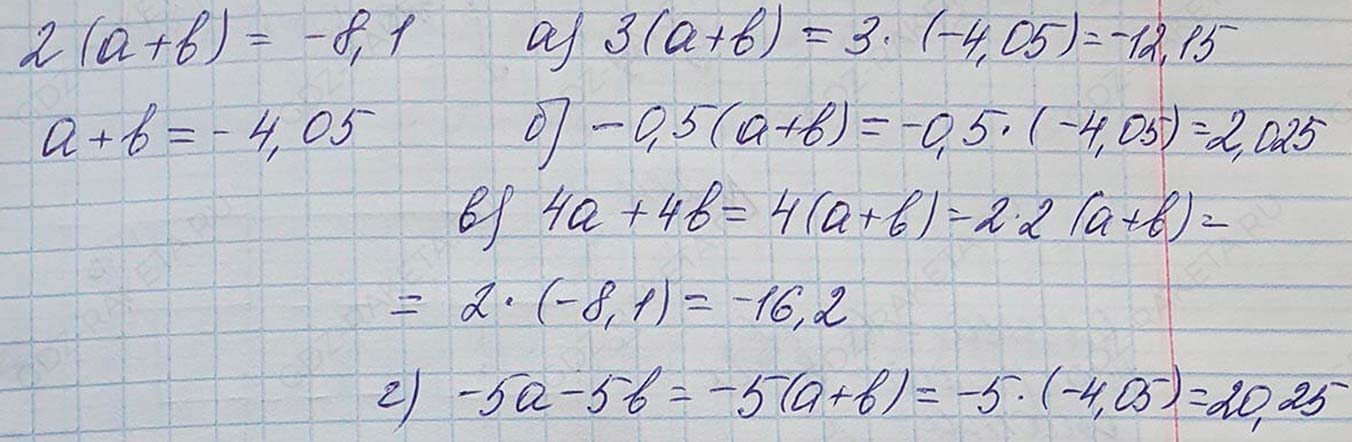 2(a+b) = -8,1 а) 3(a+b) = 3·(-4,05)=-12,15
a+b=-4,05 б) -0,5(a+b)=-0,5·(-4,05)=2,025
в) 4a+4b=4(a+b)=2·2(a+b)=
= 2·(-8,1)=-16,2
г) -5a-5b=-5(a+b)=-5·(-4,05)=20,25